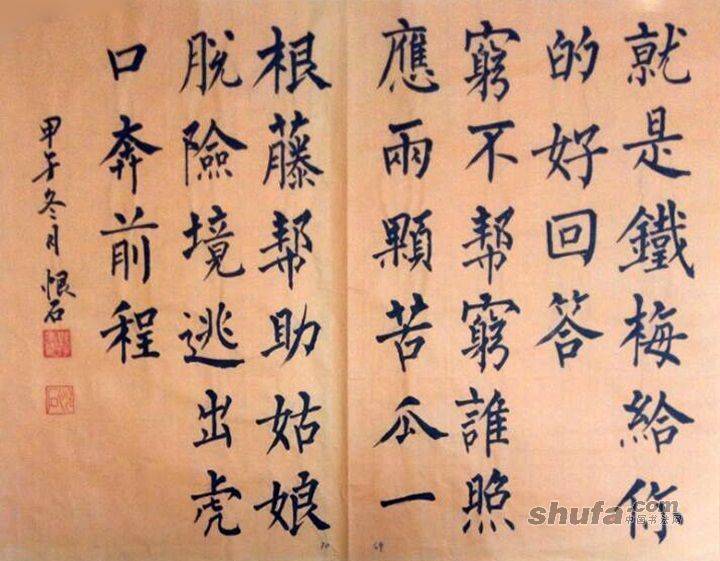 就是鐵梅給你
的好回答
窮不幫窮誰照
應兩顆苦瓜一
根藤幫助姑娘
脫險境逃出虎
口奔前程
甲午冬月恨石
70
69
shufa.com
中国书法网